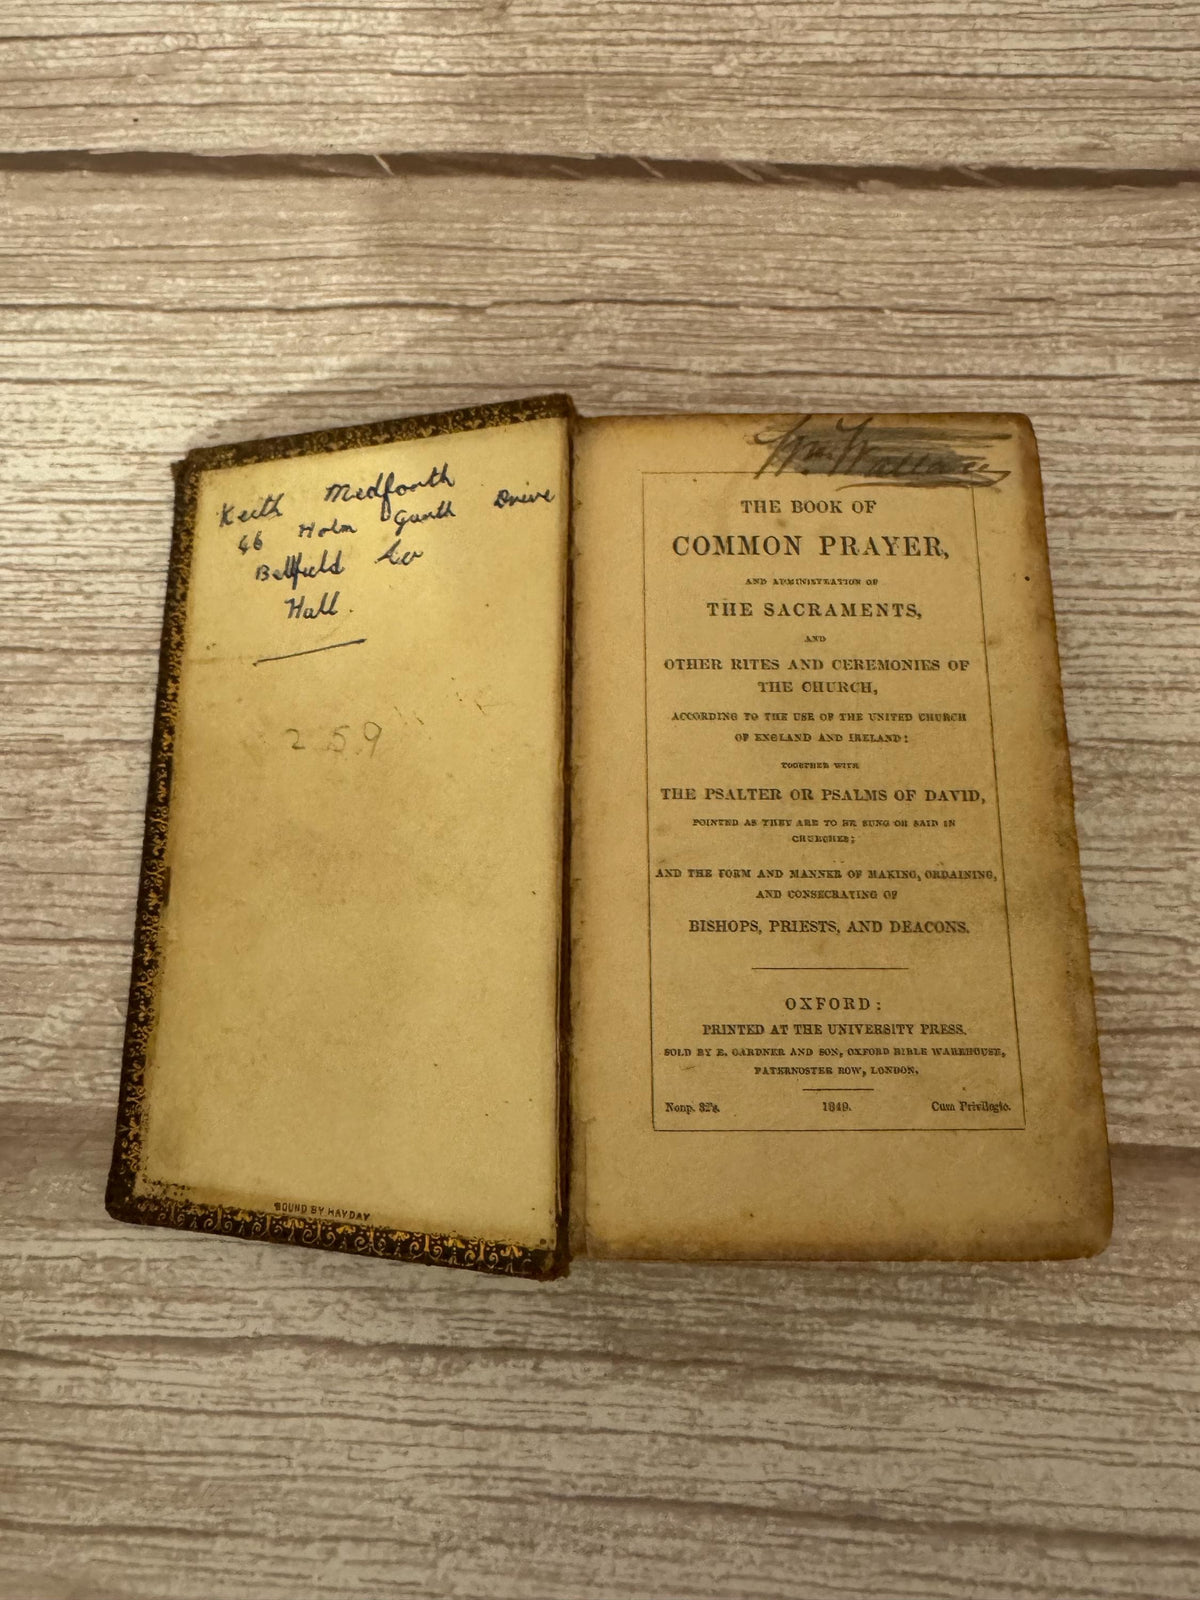 Keith Medforth
46 Holm Garth Drive
Bellfield Av
Hull.
259
BOUND BY HAYDAY
Wm. Wallace
THE BOOK OF
COMMON PRAYER,
AND ADMINISTRATION OF
THE SACRAMENTS,
AND
OTHER RITES AND CEREMONIES OF
THE CHURCH,
ACCORDING TO THE USE OF THE UNITED CHURCH
OF ENGLAND AND IRELAND:
TOGETHER WITH
THE PSALTER OR PSALMS OF DAVID,
POINTED AS THEY ARE TO BE SUNG OR SAID IN
CHURCHES;
AND THE FORM AND MANNER OF MAKING, ORDAINING,
AND CONSECRATING OF
BISHOPS, PRIESTS, AND DEACONS.
OXFORD:
PRINTED AT THE UNIVERSITY PRESS.
SOLD BY E. GARDNER AND SON, OXFORD BIBLE WAREHOUSE,
PATERNOSTER ROW, LONDON.
Nonp. 32º. 1849. Cum Privilegio.